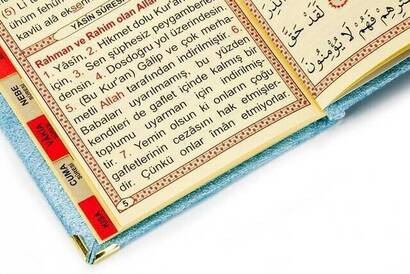 (5) Li
kavlü alâ ekse
YÂSİN SÛRESİ
Rahman ve Rahim olan Alla
1. Yâsin. 2. Hikmet dolu Kur'an
3. Sen şüphesiz peygamberle
densin. 4. Dosdoğru yol üzerindesin.
5. (Bu Kur'an) Gâlip ve çok merha
metli Allah tarafından indirilmiştir. 6.
Babaları uyarılmamış, bu yüzden
kendileri de gaflet içinde kalmış bir
toplumu uyarman için indirilmiş-
tir. 7. Yemin olsun ki onların çoğu
gafletlerinin cezasını hak etmişler-
dir. Çünkü onlar îmân etmiyorlar.
5
NEBE
SÛRESİ
VAKIA
CUMA
SÛRESİ
KISA
فَهُمْ لَا يُؤْمِنُونَ